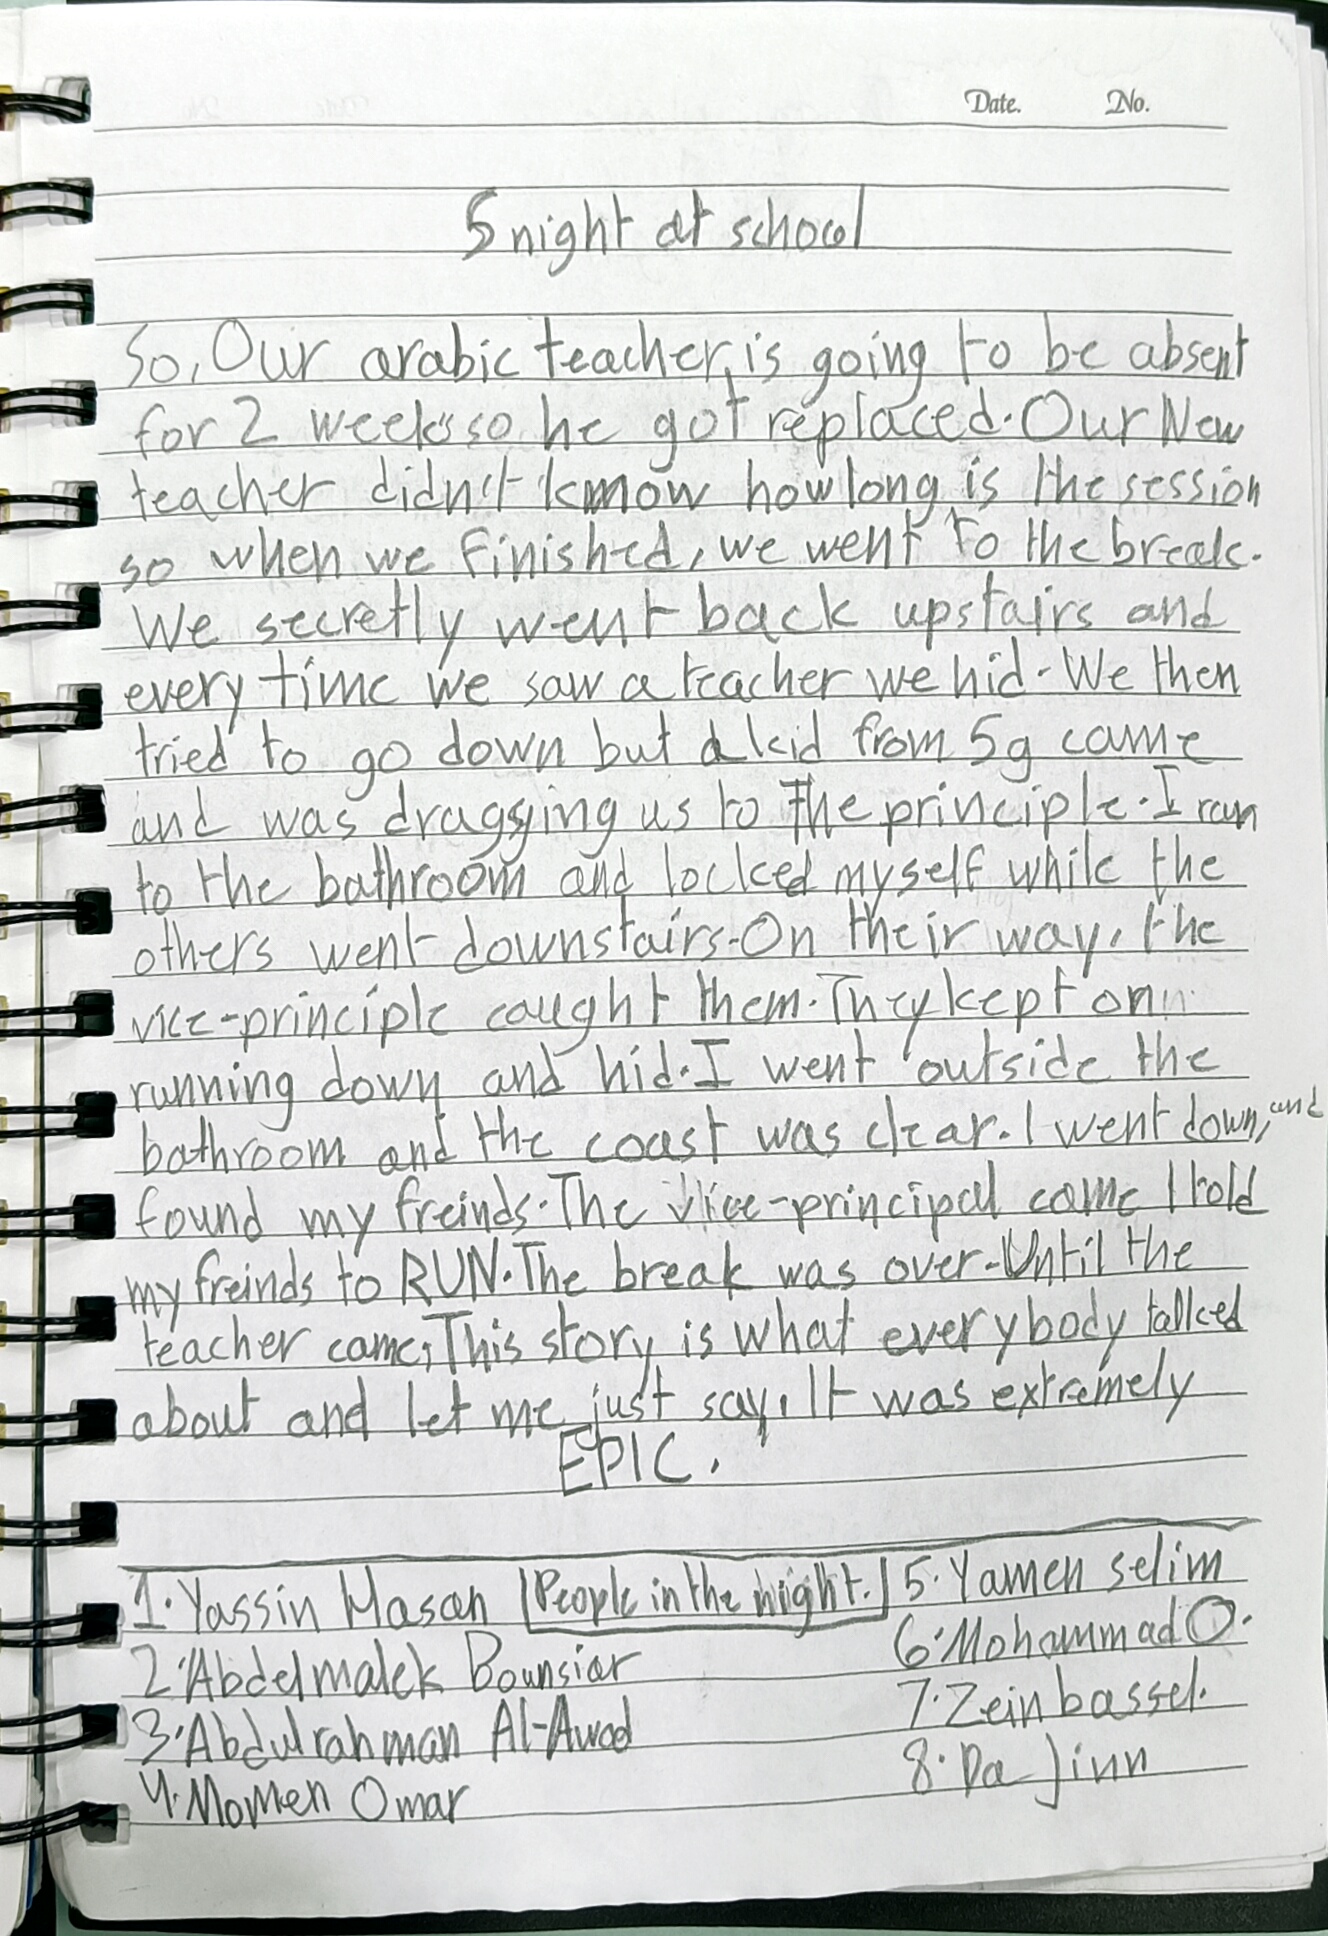 Date. No.
5 night at school
So, Our arabic teacher, is going to be absent
for 2 weeks so he got replaced. Our New
teacher didn't know how long is the session
so when we finished, we went to the break.
We secretly went back upstairs and
every time we saw a teacher we hid. We then
tried to go down but a kid from 5g came
and was dragging us to the principle. I ran
to the bathroom and locked myself while the
others went downstairs. On their way, the
vice-principle caught them. They kept on
running down and hid. I went outside the
bathroom and the coast was clear. I went down, and
found my freinds. The vice-principal came I told
my freinds to RUN. The break was over. Until the
teacher came, This story is what everybody talked
about and let me just say, It was extremely
EPIC.
1. Yassin Hasan People in the night. 5. Yamen selim
2. Abdelmalek Bounsiar 6. Mohammad O.
3. Abdulrahman Al-Awad 7. Zein bassel.
4. Momen Omar 8. Da Jinn